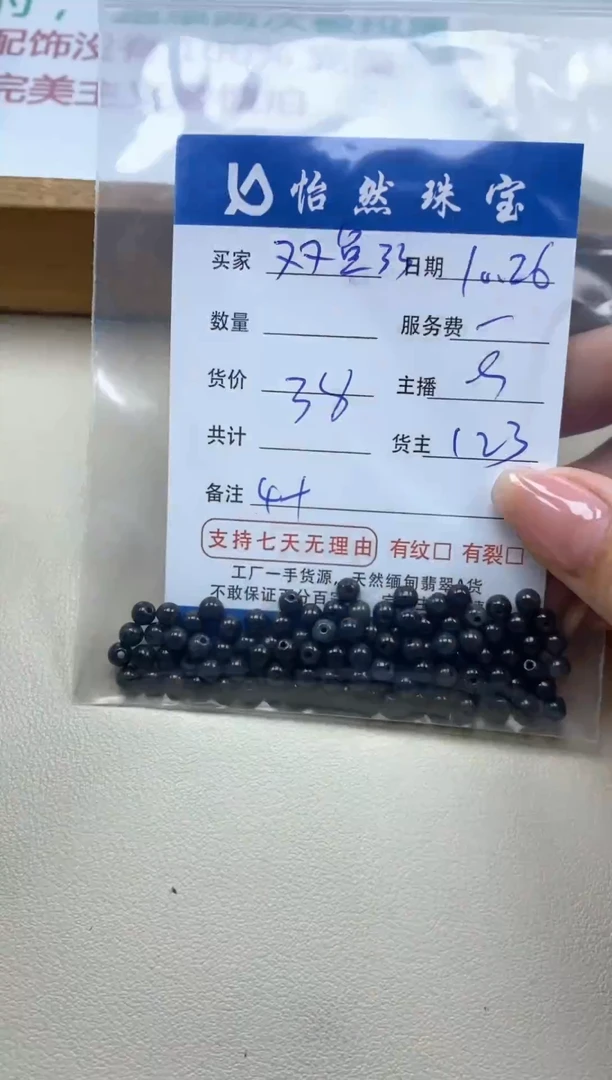 配饰没
完美主
怡然珠宝
买家 双星33 日期 10.26
数量 服务费 一
货价 38 主播
共计 货主 123
备注
支持七天无理由 有纹□ 有裂□
工厂一手货源，天然缅甸翡翠A货
不敢保证百分百完